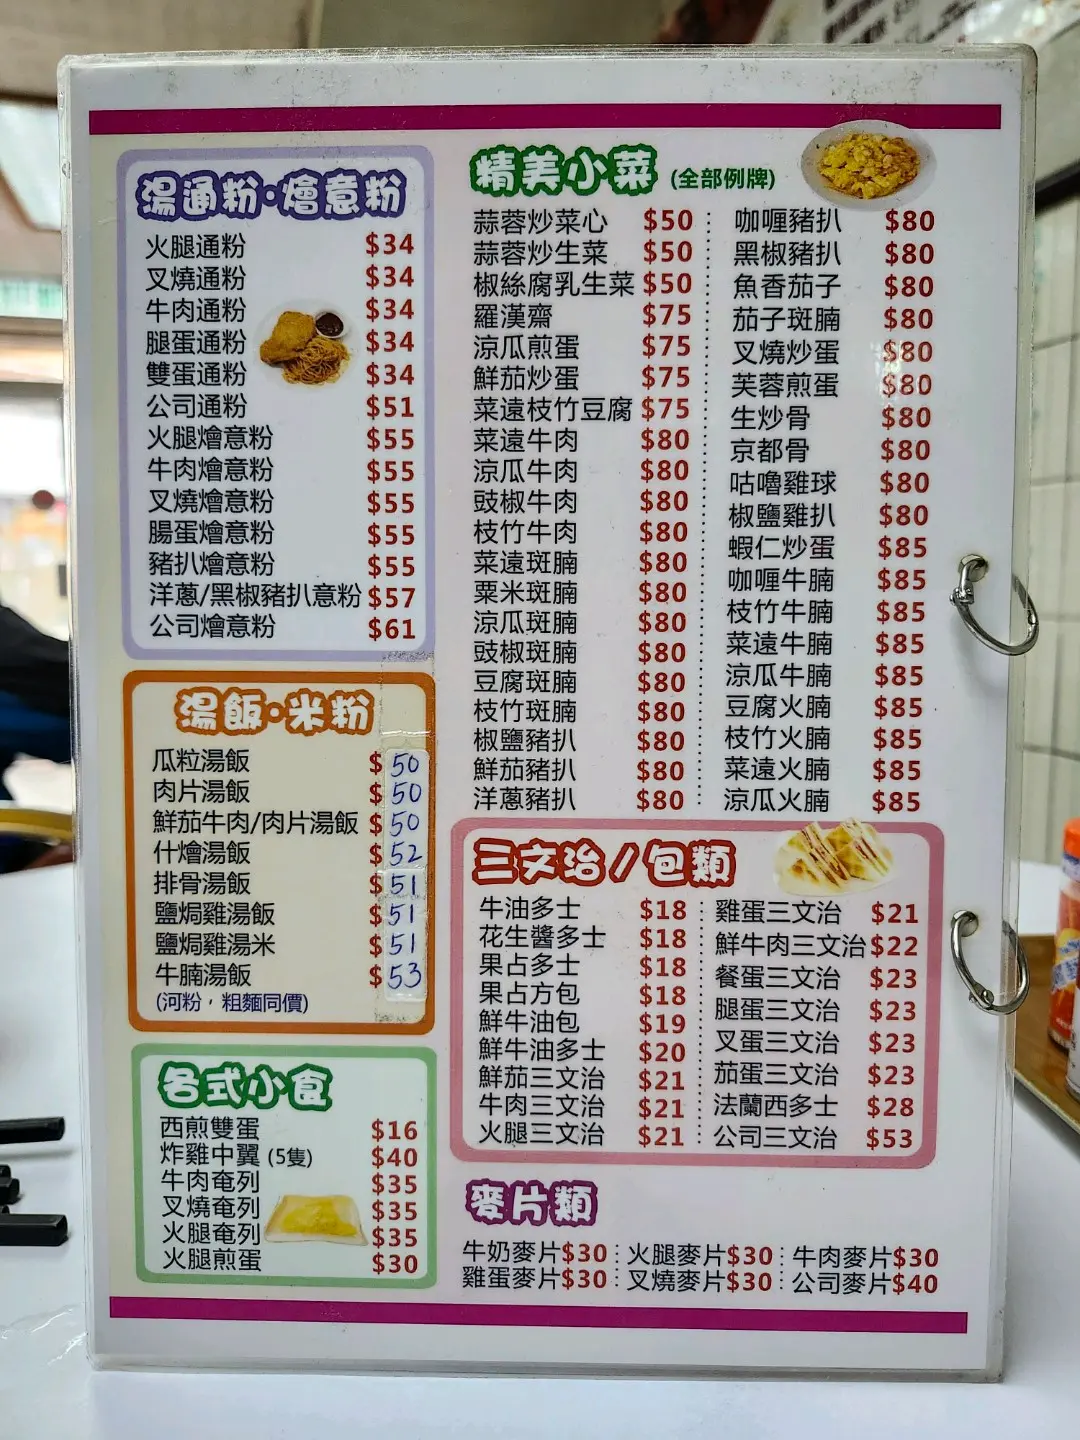 湯通粉·燴意粉
火腿通粉 $34
叉燒通粉 $34
牛肉通粉 $34
腿蛋通粉 $34
雙蛋通粉 $34
公司通粉 $51
火腿燴意粉 $55
牛肉燴意粉 $55
叉燒燴意粉 $55
腸蛋燴意粉 $55
豬扒燴意粉 $55
洋蔥/黑椒豬扒意粉 $57
公司燴意粉 $61
湯飯·米粉
瓜粒湯飯 $50
肉片湯飯 $50
鮮茄牛肉/肉片湯飯 $50
什燴湯飯 $52
排骨湯飯 $51
鹽焗雞湯飯 $51
鹽焗雞湯米 $51
牛腩湯飯 $53
(河粉，粗麵同價)
各式小食
西煎雙蛋 $16
炸雞中翼 (5隻) $40
牛肉奄列 $35
叉燒奄列 $35
火腿奄列 $35
火腿煎蛋 $30
精美小菜 (全部例牌)
蒜蓉炒菜心 $50
蒜蓉炒生菜 $50
椒絲腐乳生菜 $50
羅漢齋 $75
涼瓜煎蛋 $75
鮮茄炒蛋 $75
菜遠枝竹豆腐 $75
菜遠牛肉 $80
涼瓜牛肉 $80
豉椒牛肉 $80
枝竹牛肉 $80
菜遠斑腩 $80
粟米斑腩 $80
涼瓜斑腩 $80
豉椒斑腩 $80
豆腐斑腩 $80
枝竹斑腩 $80
椒鹽豬扒 $80
鮮茄豬扒 $80
洋蔥豬扒 $80
咖喱豬扒 $80
黑椒豬扒 $80
魚香茄子 $80
茄子斑腩 $80
叉燒炒蛋 $80
芙蓉煎蛋 $80
生炒骨 $80
京都骨 $80
咕嚕雞球 $80
椒鹽雞扒 $80
蝦仁炒蛋 $85
咖喱牛腩 $85
枝竹牛腩 $85
菜遠牛腩 $85
涼瓜牛腩 $85
豆腐火腩 $85
枝竹火腩 $85
菜遠火腩 $85
涼瓜火腩 $85
三文治/包類
牛油多士 $18
花生醬多士 $18
果占多士 $18
果占方包 $18
鮮牛油包 $19
鮮牛油多士 $20
鮮茄三文治 $21
牛肉三文治 $21
火腿三文治 $21
雞蛋三文治 $21
鮮牛肉三文治 $22
餐蛋三文治 $23
腿蛋三文治 $23
叉蛋三文治 $23
茄蛋三文治 $23
法蘭西多士 $28
公司三文治 $53
麥片類
牛奶麥片$30 火腿麥片$30 牛肉麥片$30
雞蛋麥片$30 叉燒麥片$30 公司麥片$40